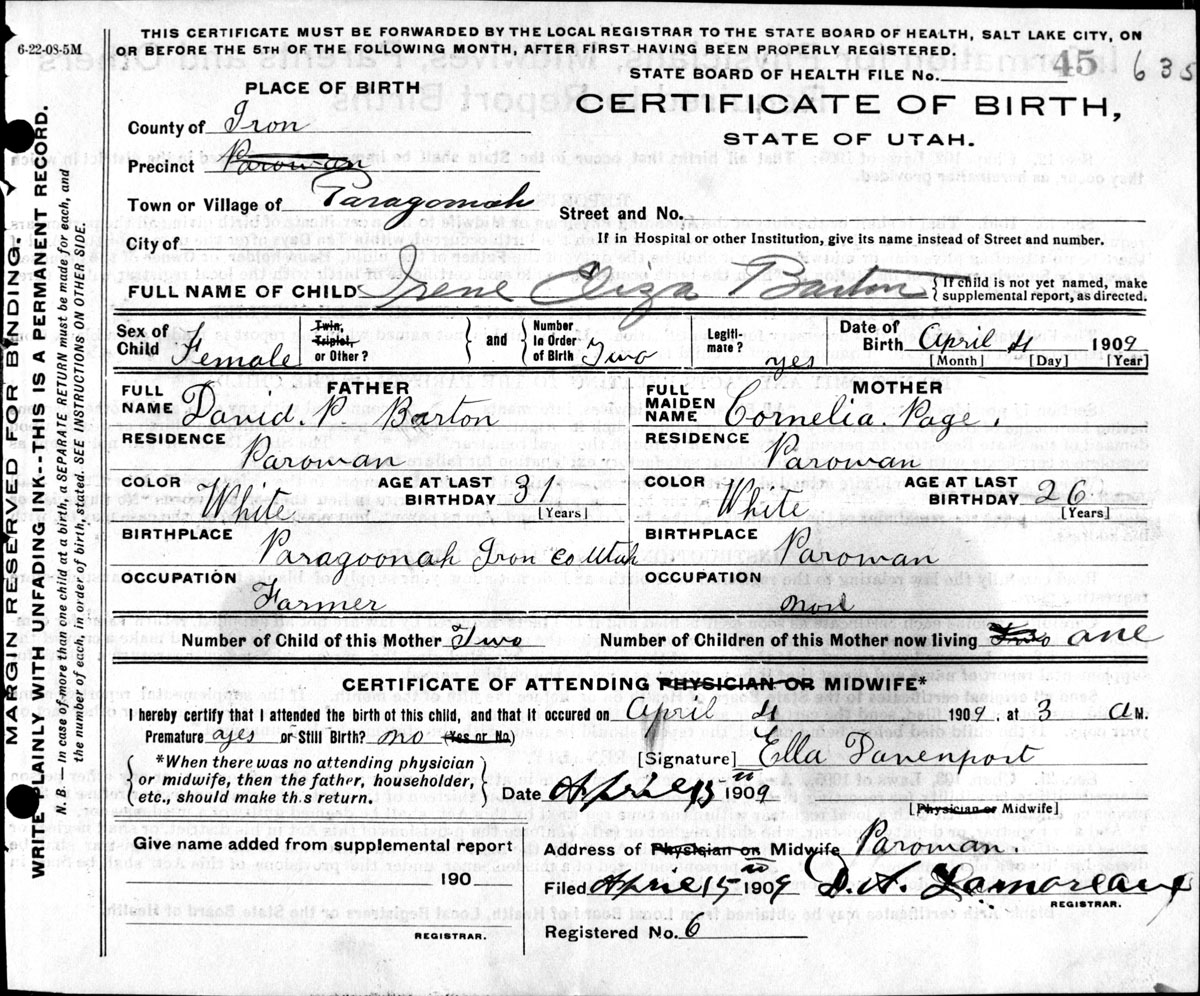 6-22-08-5M
THIS CERTIFICATE MUST BE FORWARDED BY THE LOCAL REGISTRAR TO THE STATE BOARD OF HEALTH, SALT LAKE CITY, ON
OR BEFORE THE 5TH OF THE FOLLOWING MONTH, AFTER FIRST HAVING BEEN PROPERLY REGISTERED.
STATE BOARD OF HEALTH FILE No. 45 635
PLACE OF BIRTH
CERTIFICATE OF BIRTH,
STATE OF UTAH.
County of Iron
Precinct Parowan
Town or Village of Paragonah
Street and No.
City of
If in Hospital or other Institution, give its name instead of Street and number.
FULL NAME OF CHILD Irene Barton { If child is not yet named, make
supplemental report, as directed.
Sex of Child Female
Twin, Triplet, or Other? } and { Number In Order of Birth Two
Legitimate? yes
Date of Birth April 4 1909
[Month] [Day] [Year]
FATHER
FULL NAME David. P. Barton
RESIDENCE Parowan
COLOR White
AGE AT LAST BIRTHDAY 31
[Years]
BIRTHPLACE Paragoonah Iron co Utah
OCCUPATION Farmer
MOTHER
FULL MAIDEN NAME Cornelia Page.
RESIDENCE Parowan
COLOR White
AGE AT LAST BIRTHDAY 26
[Years]
BIRTHPLACE Parowan
OCCUPATION non
Number of Child of this Mother Two
Number of Children of this Mother now living Two one
CERTIFICATE OF ATTENDING PHYSICIAN OR MIDWIFE*
I hereby certify that I attended the birth of this child, and that it occured on April 4 1909, at 3 a M.
Premature yes or Still Birth? no (Yes or No)
*When there was no attending physician
or midwife, then the father, householder,
etc., should make th.s return.
[Signature] Ella Davenport
Date April 15 1909
[Physician or Midwife]
Give name added from supplemental report
190
REGISTRAR.
Address of Physician or Midwife Parowan.
Filed April 15 1909 D. A. Lamoreaux
REGISTRAR.
Registered No. 6
MARGIN RESERVED FOR BINDING.
WRITE PLAINLY WITH UNFADING INK---THIS IS A PERMANENT RECORD.
N. B. — In case of more than one child at a birth, a SEPARATE RETURN must be made for each, and
the number of each, in order of birth, stated. SEE INSTRUCTIONS ON OTHER SIDE.